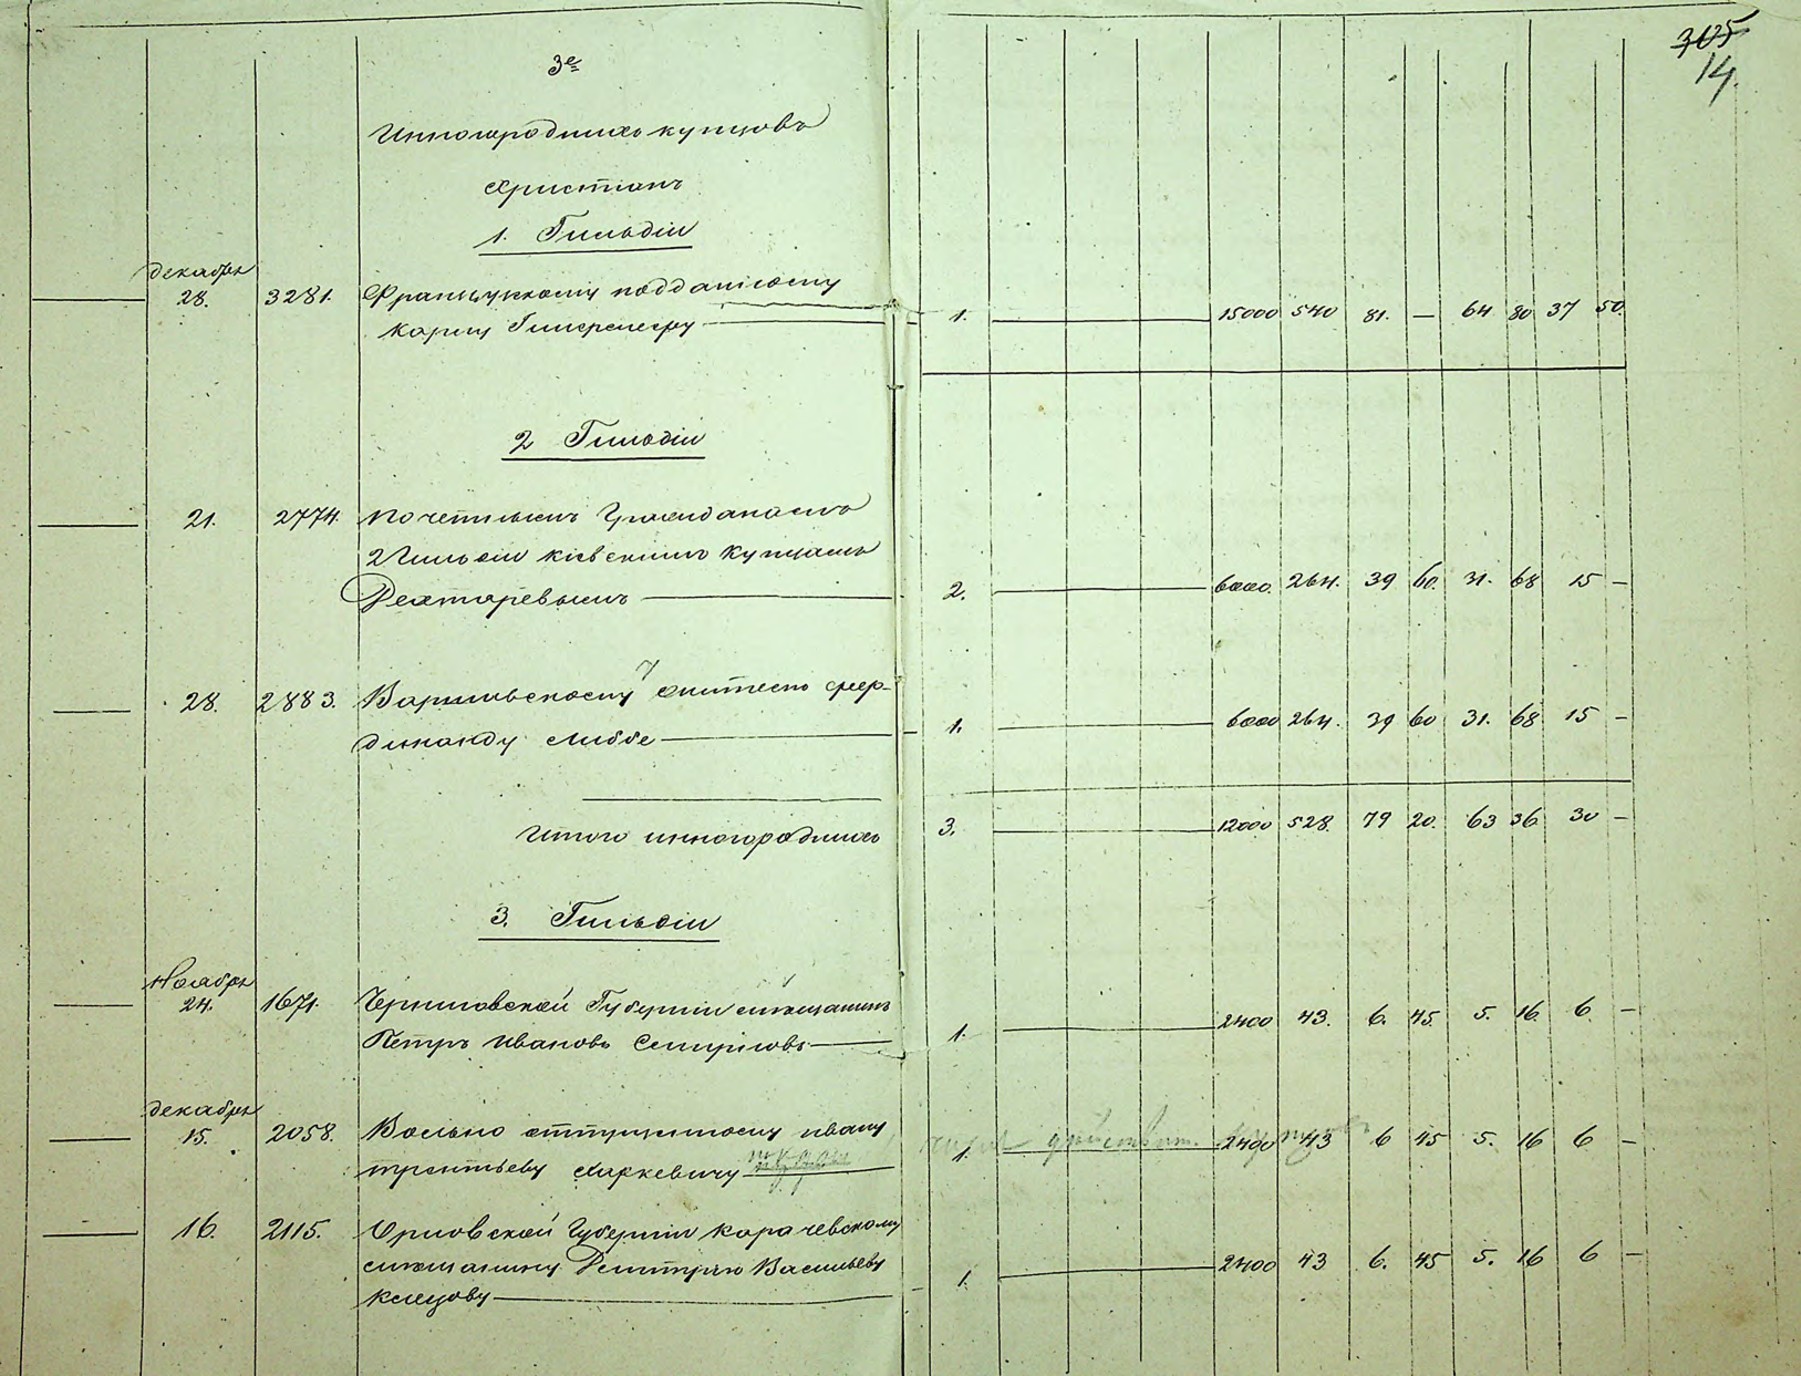 305
14
3е
Инногородныхъ купцовъ
Христiанъ
1. Гильдiи
декабря
28. 3281. Французскому подданному
Карлу 1. 15000 540 81. — 64 80 37 50.
2 Гильдiи
21. 2774. Почетнымъ Гражданамъ
2 Гильдiи кiевскимъ купцамъ
Дехтяревымъ 2. 6000. 264. 39 60. 31. 68 15 —
28. 2883. Варшавскому жителю Фер-
динанду Либбе 1. 6000 264. 39 60 31. 68 15 —
Итого инногородныхъ 3. 12000 528. 79 20. 63 36 30 —
3. Гильдiи
Ноября
24. 1671. Черниговской Губернiи мѣщанинъ
Петръ Ивановъ Смирновъ 1. 2400 43. 6. 45. 5. 16. 6. —
декабря
15. 2058. Вольно отпущенному Ивану
Терентьеву Маркевичу 1. 2400 43 6 45 5. 16 6 —
16. 2115. Орловской Губернiи Карачевскому
мѣщанину Дмитрiю Васильеву
1. 2400 43 6. 45 5. 16 6 —